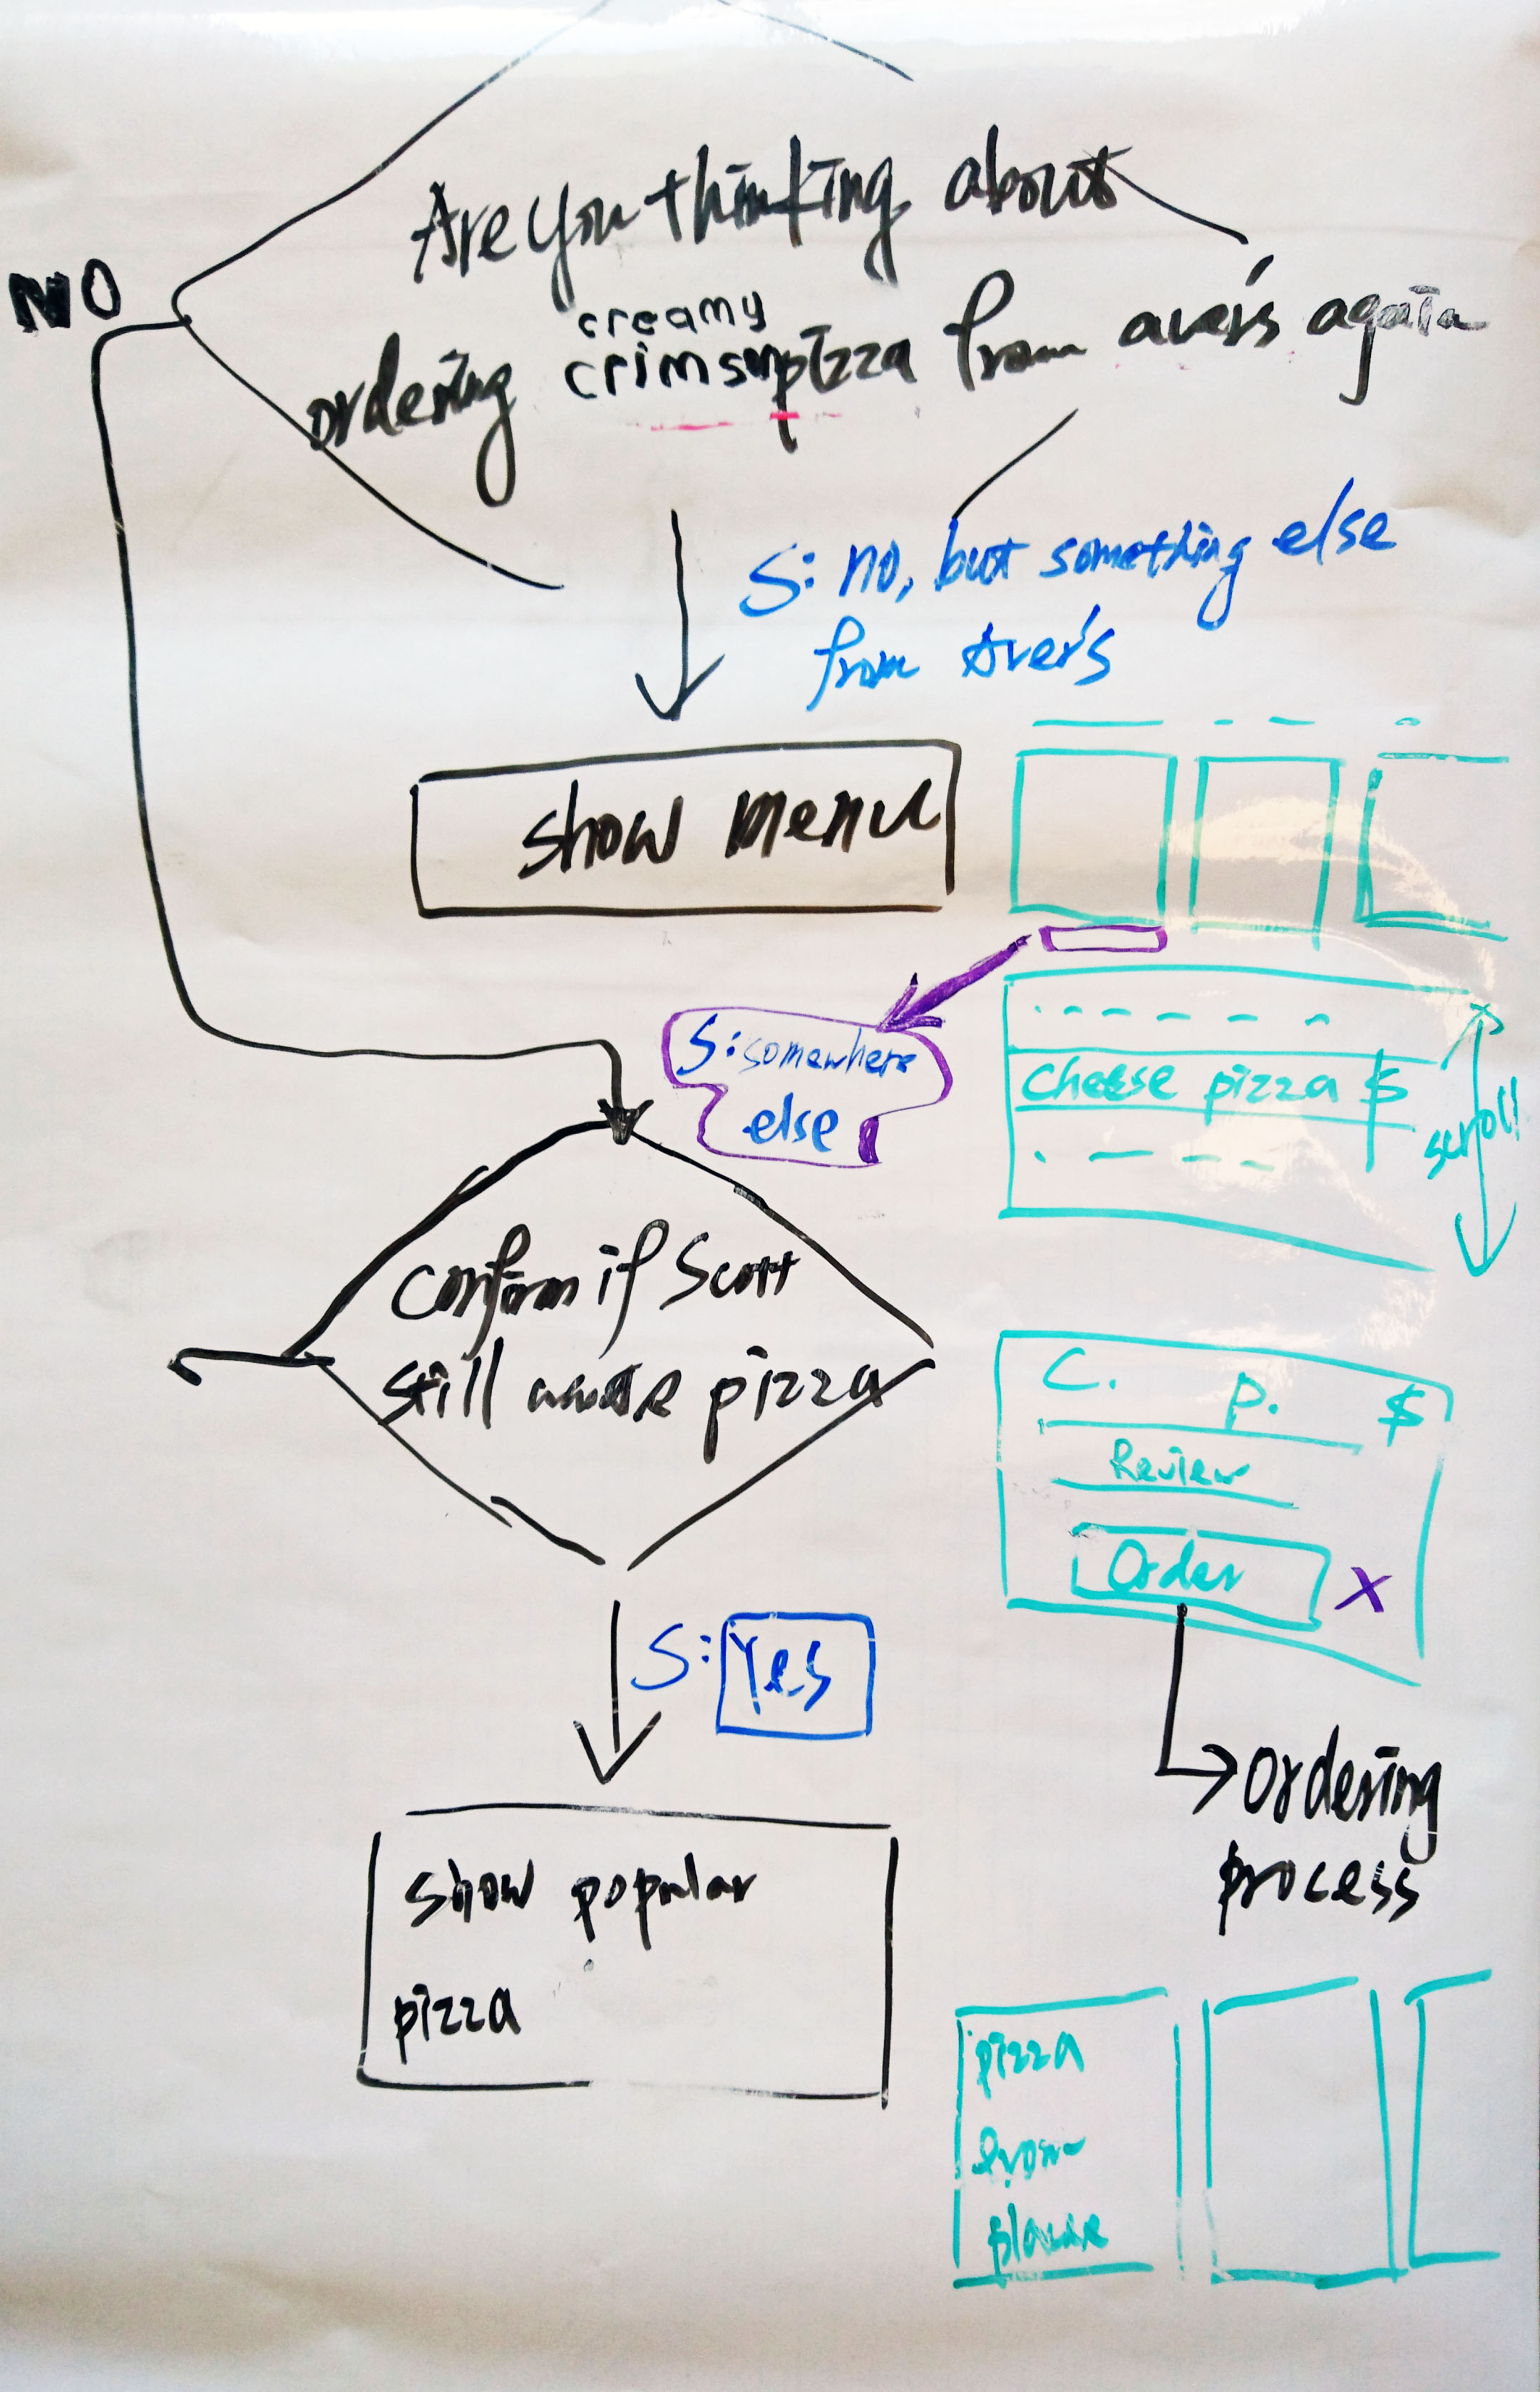 Are you thinking about
NO
creamy
ordering crimson pizza from aver's again
S: no, but something else
from Aver's
show menu
S: somewhere
else
cheese pizza $
scroll
Confirm if Scott
still wants pizza
C. P. $
Review
Order X
S: Yes
ordering
process
show popular
pizza
pizza
from